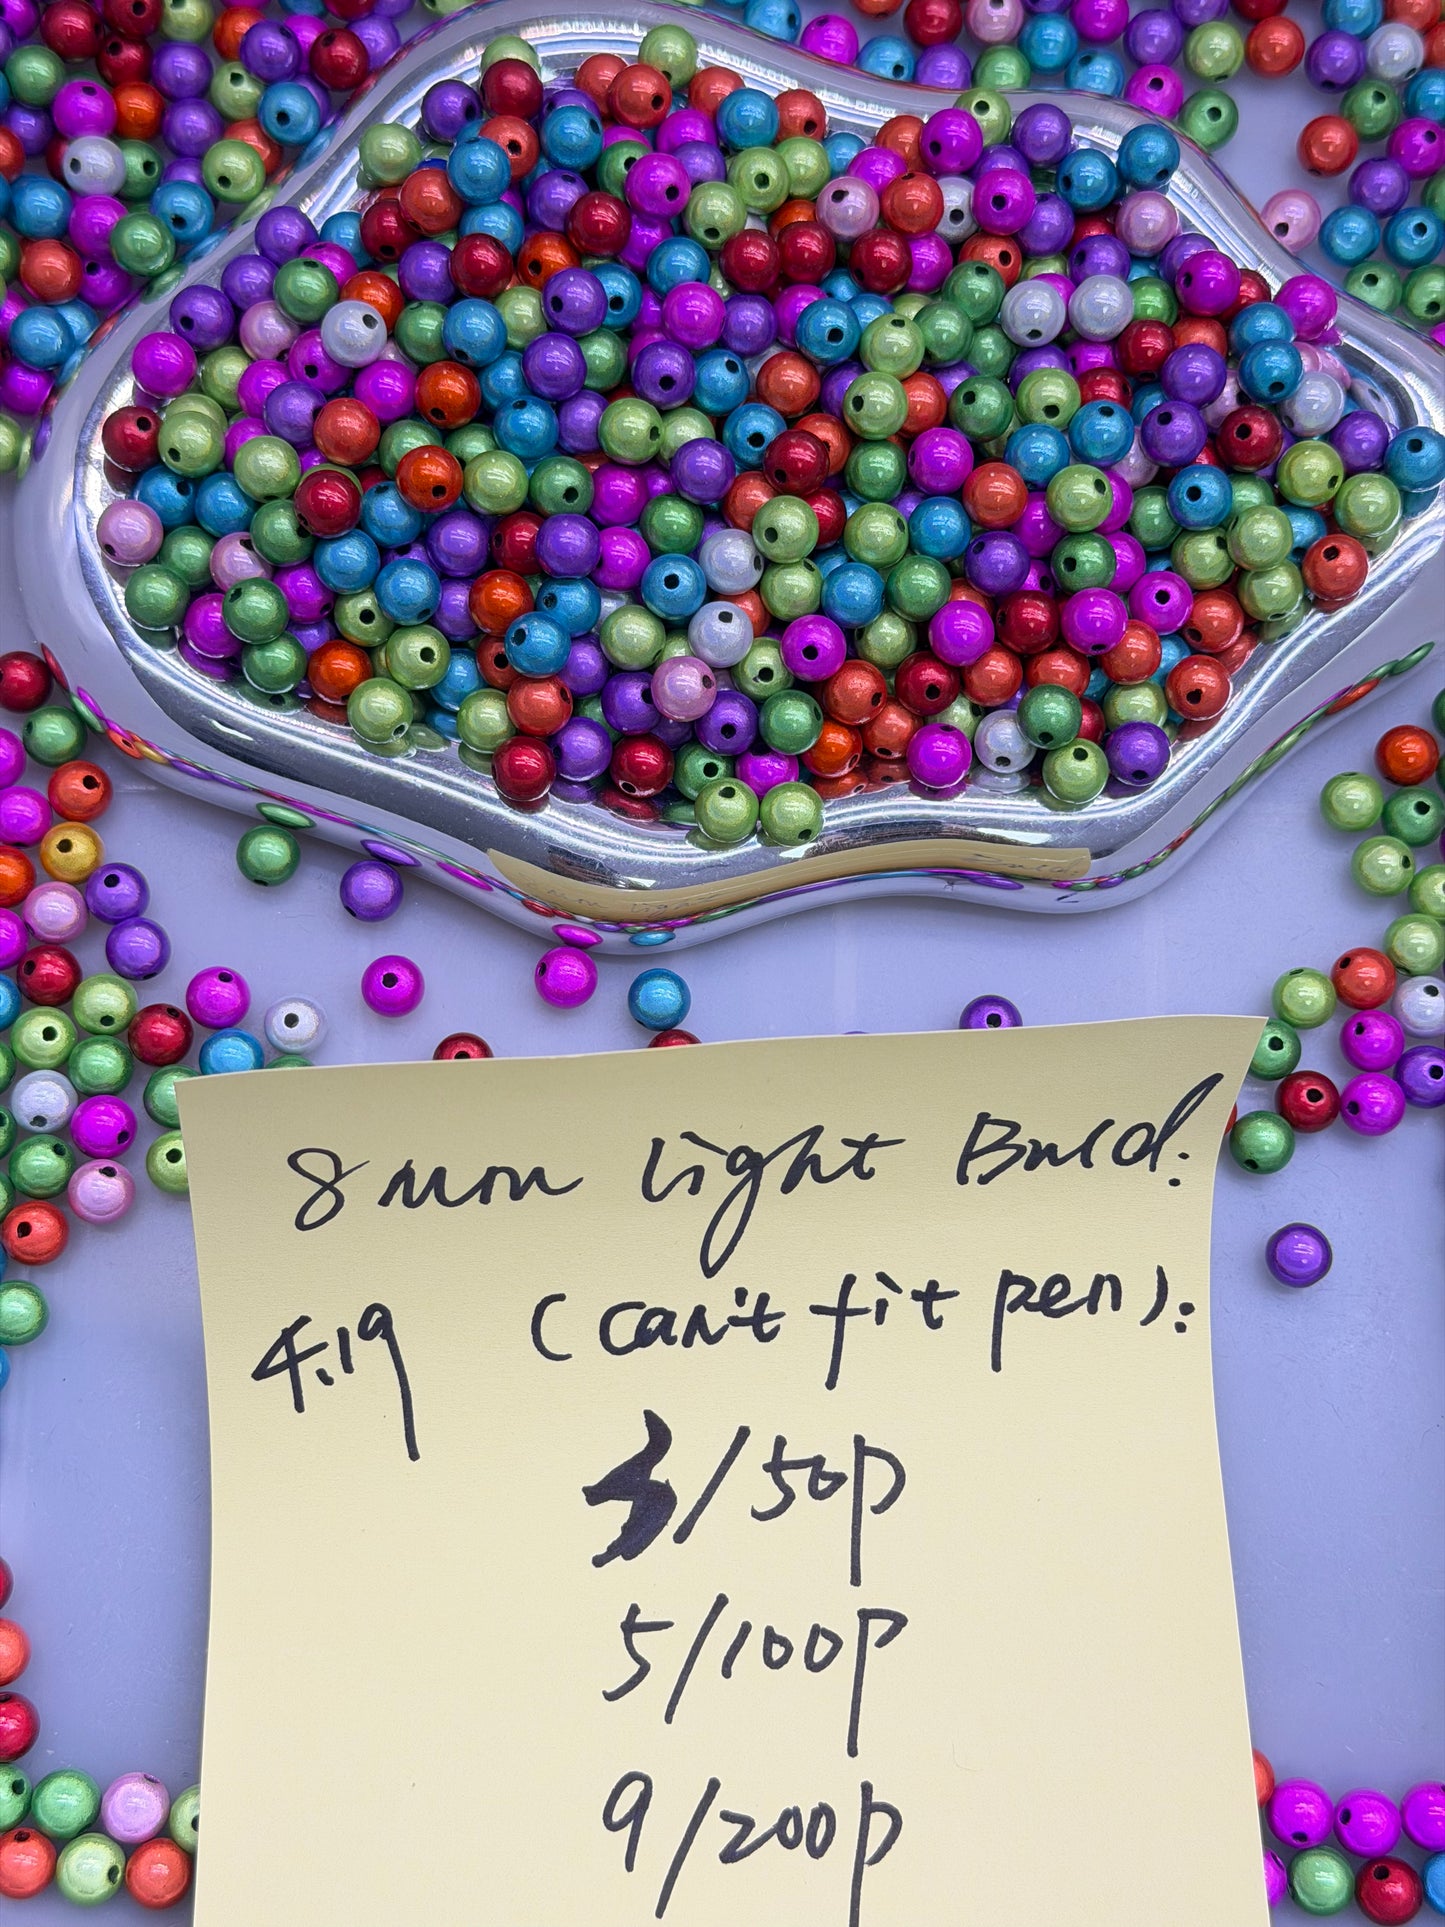 8mm light Bead:
4.19 (can't fit pen):
3/50p
5/100p
9/200p